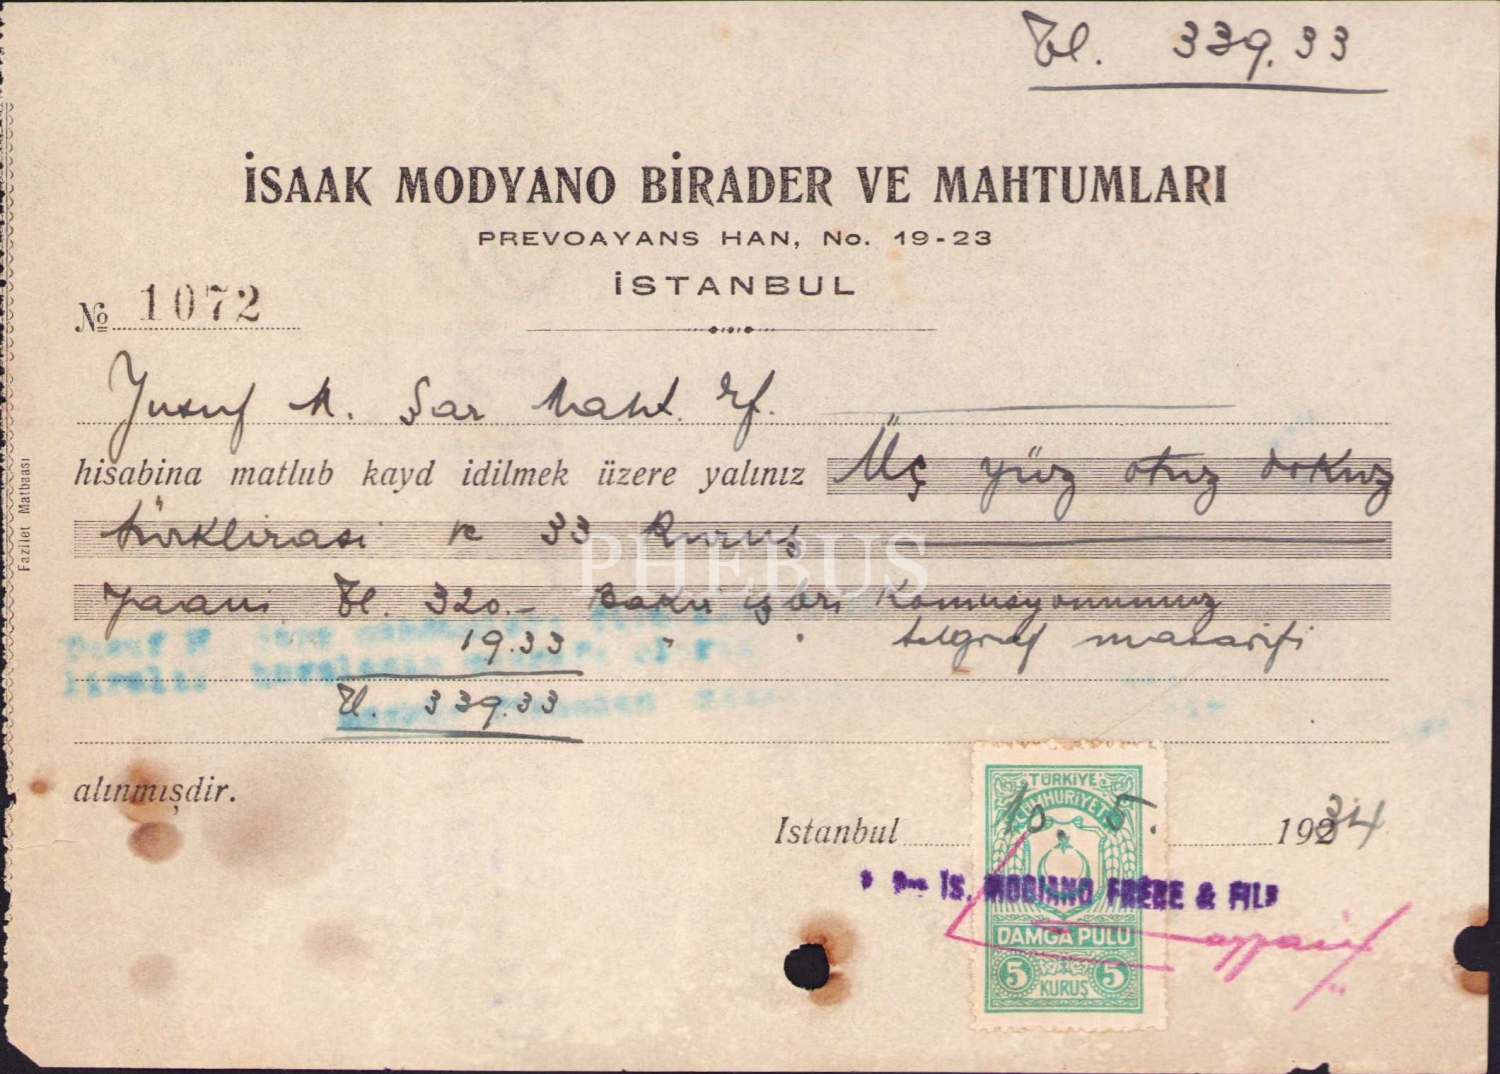 Tl. 339.33
İSAAK MODYANO BİRADER VE MAHTUMLARI
PREVOAYANS HAN, No. 19-23
İSTANBUL
№ 1072
Yusuf M. Şar Maht. Ef.
hisabina matlub kayd idilmek üzere yalınız Üç yüz otuz dokuz
türklirasi ve 33 Kuruş
yaani Tl. 320.- Baku işleri Komusyonumuz
19.33 " " telgraf masarifi
Tl. 339.33
alınmışdir.
Istanbul 10. 5. 1934
IS. MODIANO FRÈRE & FILS
TÜRKİYE
CÜMHURİYETİ
DAMGA PULU
5 KURUŞ 5
Fazilet Matbaası
PHEBUS